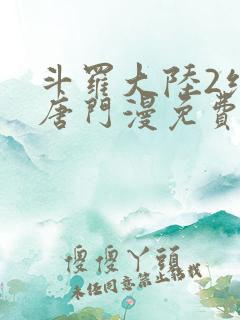 斗羅大陸2
唐門漫免費
傻傻丫頭
未经同意禁止转载